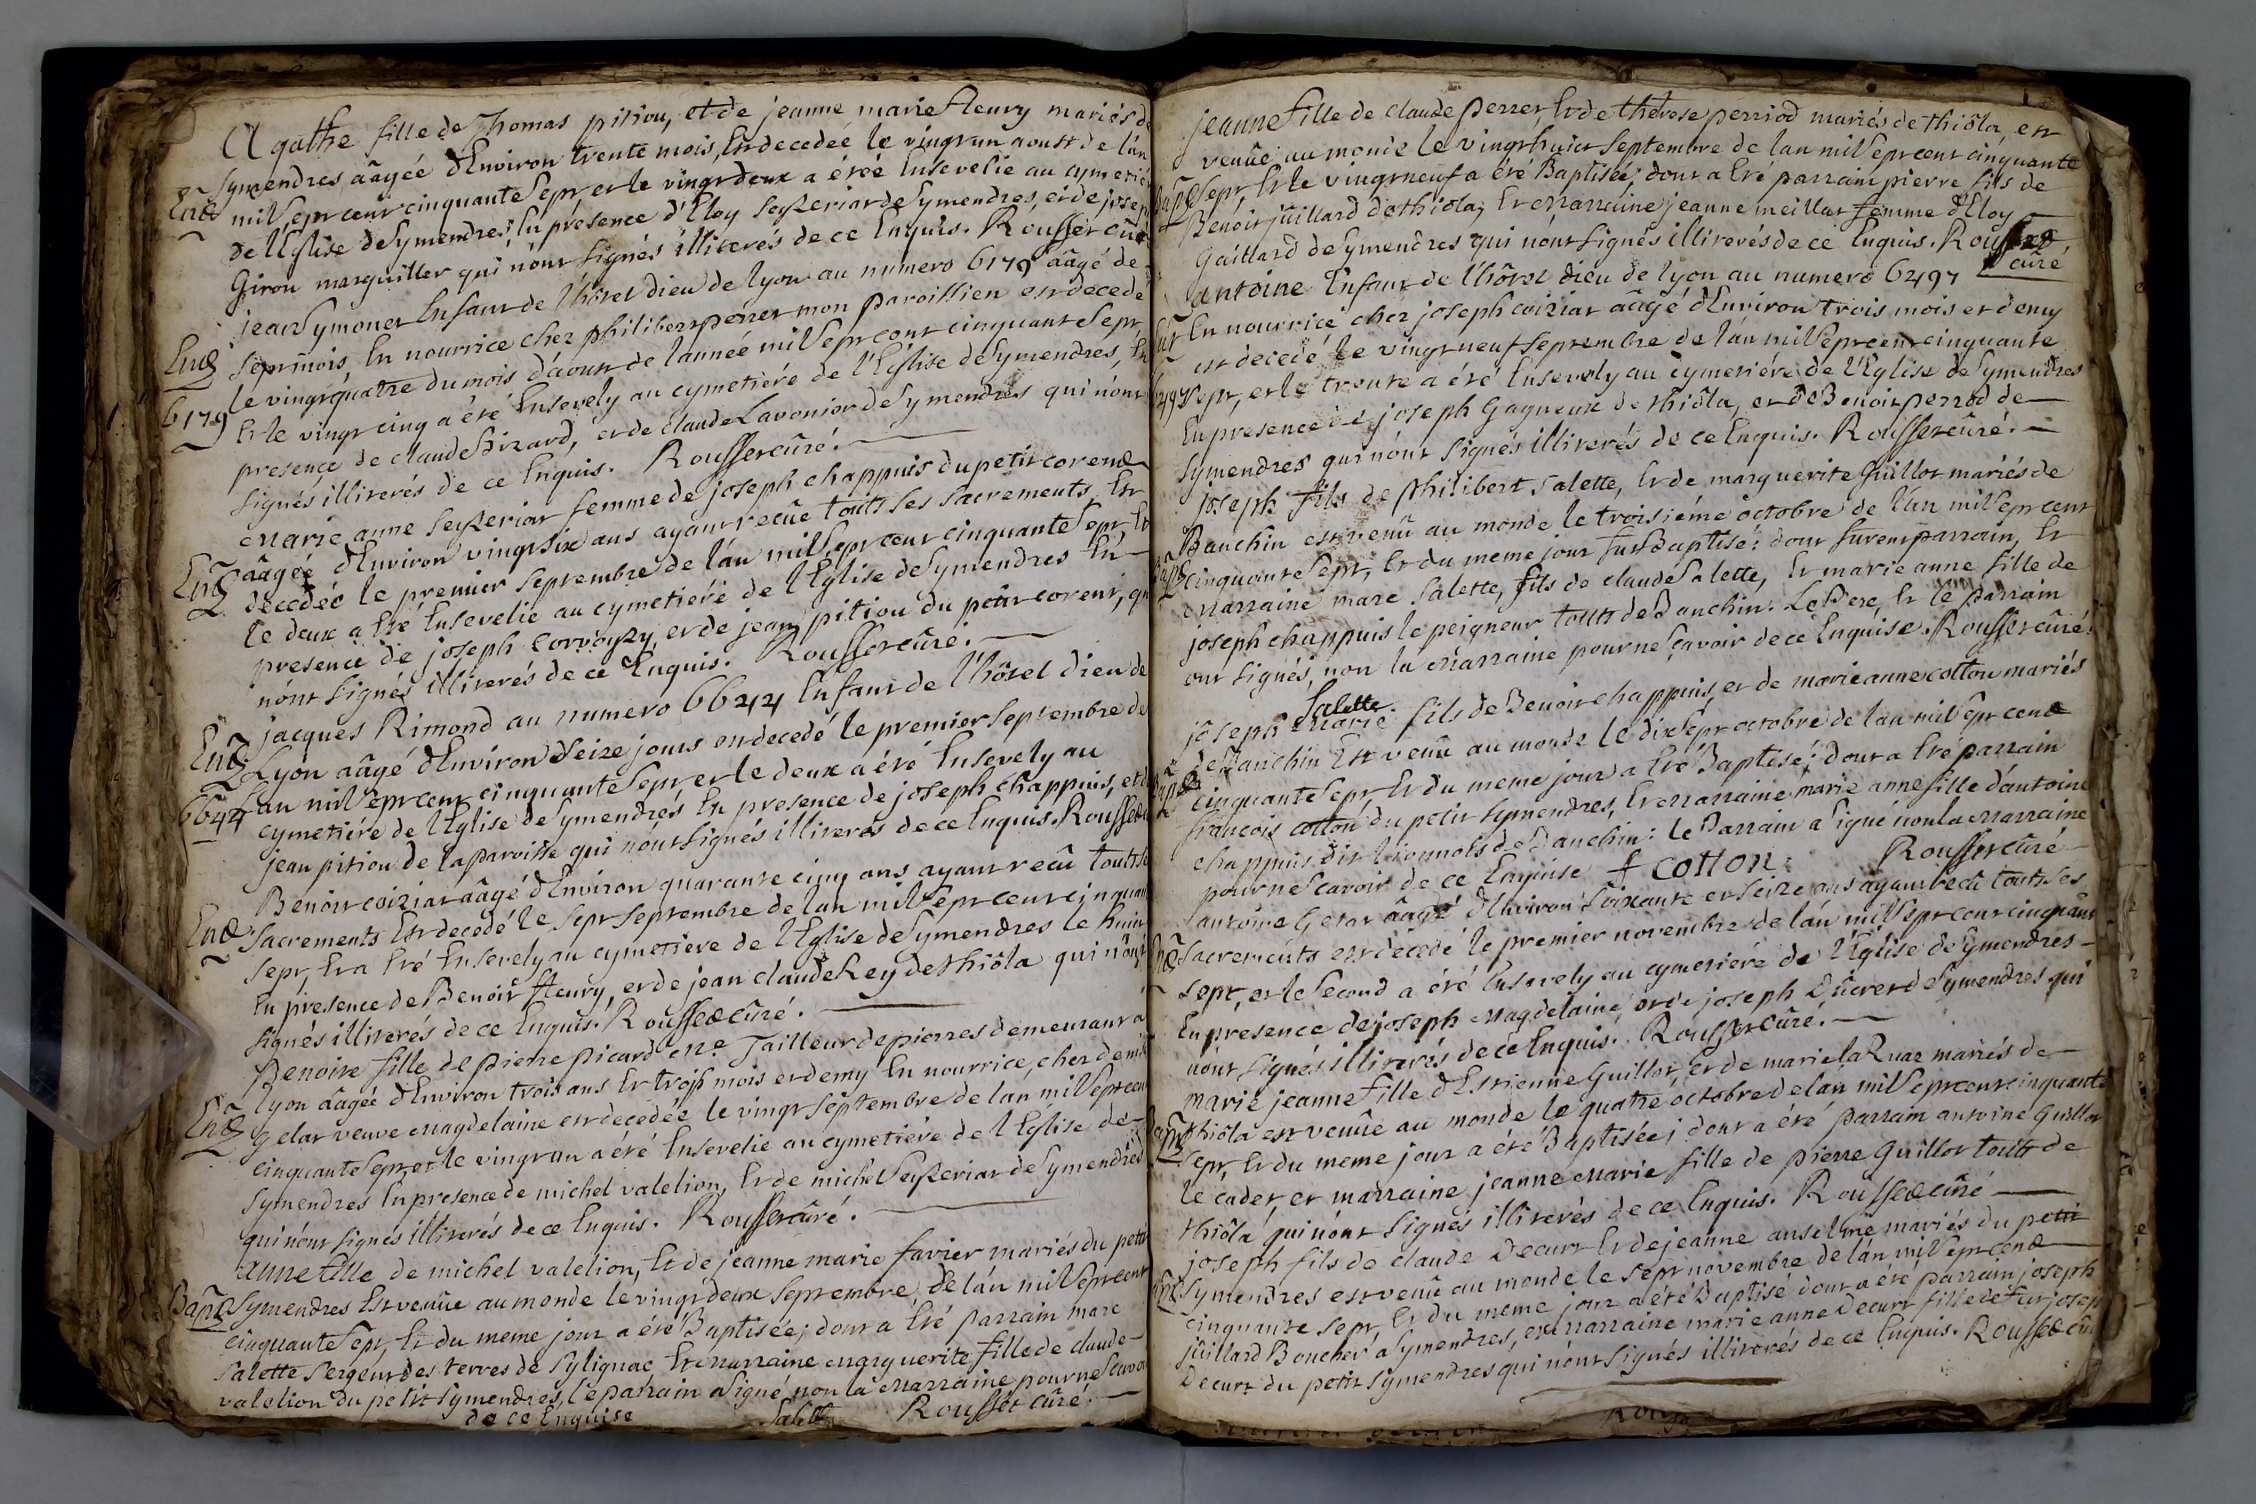 Agathe fille de Thomas pitiou, et de jeanne marie fleury mariés de
Symendres, aâgée d'Environ trente mois, Est decedée le vingt un aoust de l'an
Ent mil Sept cent cinquante Sept, et le vingt deux a étéé Ensevelie au cymetiére
de l'Eglise de Symendres; En présence d'Eloy Seyzeriat de Symendres, et de joseph
Girou marguiller qui n'ont signés illiterés de ce Enquis. Rousset curé
jean Symonet Enfant de l'hôtel dieu de lyon au numero 6179 aâgé de
Ent Sept mois, En nourrice chez philibert perret mon paroissien est decedé
6179 le vingt quatre du mois d'aoust de l'année mil Sept cent cinquante Sept,
Et le vingt cinq a été Ensevely au cymetiére de l'Eglise de Symendres, En
presence de claude Bizard, et de claude Lavonior de Symendres qui n'ont
signés illiterés de ce Enquis. Rousset curé.
Marie anne Seyzeriat femme de joseph chappuis du petit corent
Ent aâgée d'Environ vingt six ans ayant reçûe touts ses sacrements, Est
decedée le premier septembre de l'an mil Sept cent cinquante Sept Et
le deux a Eté Ensevelie au cymetiére de l'Eglise de Symendres En
presence de joseph corvoyzy, et de jean pitiou du petit corent, qui
n'ont signés illiterés de ce Enquis. Rousset curé.
jacques Rimond au numero 6644 Enfant de l'hôtel dieu de
Ent Lyon aâgé d'Environ Seize jours est decedé le premier septembre de
6644 l'an mil Sept cent cinquante Sept, et le deux a été Ensevely au
cymetiére de l'Eglise de Symendres En presence de joseph chappuis, et de
jean pitiou de la paroisse qui n'ont signés illiterés de ce Enquis. Rousset
Benoit coiziat aâgé d'Environ quarante cinq ans ayant reçû touts ses
Ent Sacrements Est decedé le sept septembre de l'an mil Sept cent cinquante
sept, Et a Eté Ensevely au cymetiere de l'Eglise de Symendres le huit
En presence de Benoit fleury, et de jean claude Rey de thiôla qui n'ont
signés illiterés de ce Enquis. Rousset curé.
Benoite fille de pierre picard Me Tailleur de pierres demeurant à
Lyon aâgée d'Environ trois ans Et trois mois et demy En nourrice, chez
Ent gelat veuve Magdelaine est decedée le vingt septembre de l'an mil Sept cent
cinquante Sept, et le vingt un a été Ensevelie au cymetiére de l'Eglise de
Symendres En presence de michel valelion, Et de michel Seyzeriat de Symendres
qui n'ont signés illiterés de ce Enquis. Rousset curé.
Anne fille de michel valelion, Et de jeanne marie favier mariés du petit
Bapt Symendres Est venûe au monde le vingt deux Septembre de l'an mil Sept cent
cinquante Sept, Et du meme jour a été Baptisée; dont a Eté parrain marc
Salette Sergent des terres de Sylignac Et Marraine Marguerite fille de claude
valelion du petit Symendres, le parrain a signé non la Marraine pour ne Sçavoir
de ce Enquise Salette Rousset curé.
jeanne fille de claude perret, Et de thérese perriod mariés de thiôla, est
venûe au monde le vingt huit septembre de l'an mil Sept cent cinquante
Bapt Sept, Et le vingt neuf a été Baptisée; dont a Eté parrain pierre fils de
Benoit juillard de thiola, Et Marraine jeanne meillat femme d'Eloy
Gaillard de Symendres qui n'ont signés illiterés de ce Enquis. Rousset
curé
antoine Enfant de l'hôtel dieu de lyon au numero 6497
Ent En nourrice chez joseph coiziat aâgé d'Environ trois mois et demy
est decedé le vingt neuf septembre de l'an mil Sept cent cinquante
6497 sept, et le trente a été Ensevely au cymetiére de l'Eglise de Symendres
En presence de joseph Gagneux de thiôla, et de Benoit perrod de
Symendres qui n'ont signés illiterés de ce Enquis. Rousset curé.
joseph fils de philibert Salette, Et de marguerite Guillot mariés de
Banchin est venû au monde le troisiéme octobre de l'an mil Sept cent
Bapt cinquante Sept, Et du meme jour fust Baptisé; dont furent parrain, Et
Marraine marc Salette, fils de claude Salette, Et marie anne fille de
joseph chappuis le peigneur touts de Banchin. Le Pere, Et le parrain
ont signés, non la Marraine pour ne Sçavoir de ce Enquise. Rousset curé.
Salette.
joseph Marie fils de Benoit chappuis, et de marie anne cotton mariés
de Banchin Est venû au monde le dix Sept octobre de l'an mil Sept cent
Bapt cinquante Sept, Et du meme jour a Eté Baptisé; dont a Eté parrain
françois cotton du petit Symendres, Et Marraine marie anne fille d'antoine
chappuis dit lionnois de Banchin: le Parrain a signé non la Marraine
pour ne Sçavoir de ce Enquise f cotton. Rousset Curé
antoine Gerar aâgé d'Environ Soixante et seize ans ayant reçû touts ses
Ent Sacrements est decedé le premier novembre de l'an mil Sept cent cinquante
sept, et le Second a été Ensevely au cymetiére de l'Eglise de Symendres
En presence de joseph Magdelaine, et de joseph Ducret de Symendres qui
n'ont signés illiterés de ce Enquis. Rousset curé.
Marie jeanne fille d'Estienne Guillot, et de marie la Ruaz mariés de
Bapt thiôla est venûe au monde le quatre octobre de l'an mil Sept cent cinquante
sept, Et du meme jour a été Baptisée; dont a été parrain antoine Guillot
le cadet, et marraine jeanne Marie fille de pierre Guillot touts de
thiôla qui n'ont signés illiterés de ce Enquis. Rousset curé
joseph fils de claude Decurt Et de jeanne anselme mariés du petit
Bapt Symendres est venû au monde le Sept novembre de l'an mil Sept cent
cinquante sept, Et du meme jour a été Baptisé dont a été parrain joseph
juillard Boucher a Symendres, et Marraine marie anne Decurt fille de feu joseph
Decurt du petit Symendres qui n'ont signés illiterés de ce Enquis. Rousset curé